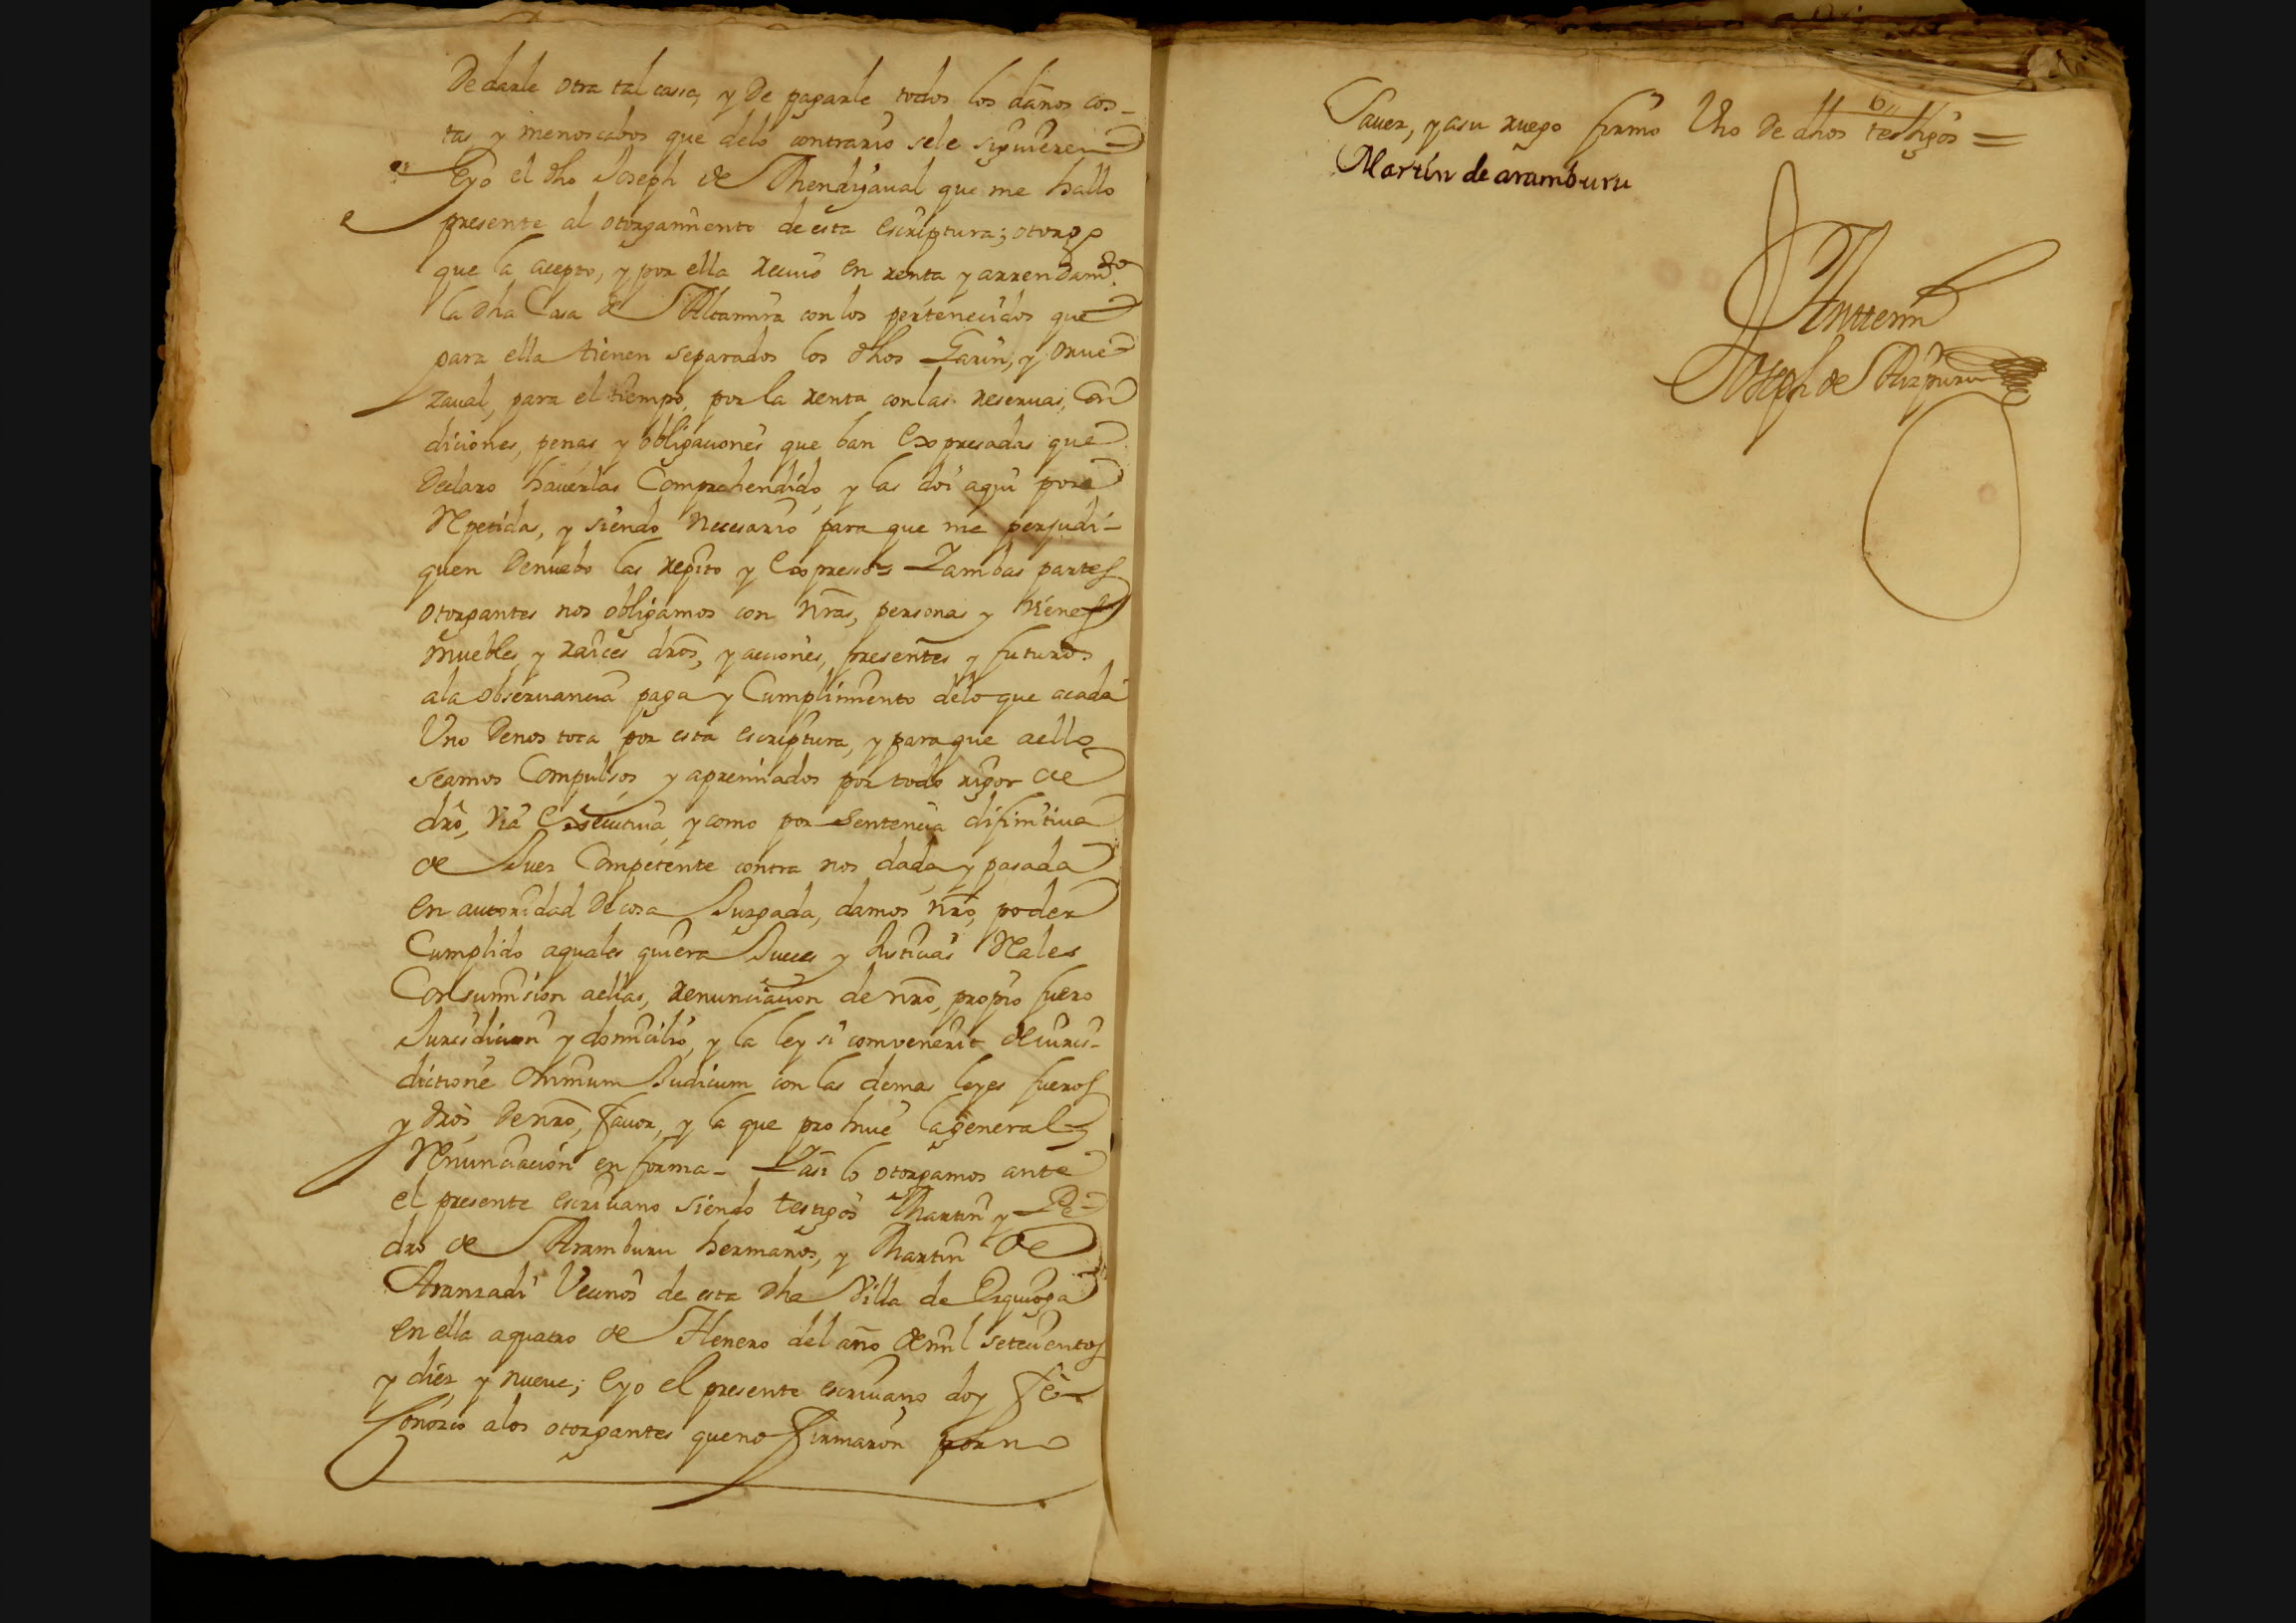 De darle otra tal cassa, y de pagarle todos los daños cos-
tas y menoscabos que delo contrario sele siguieren
Eyo el dho Joseph de Mendizaual que me hallo
presente al otorgamiento de esta escriptura; otorgo
que la acepto, y por ella reciuo en renta y arrendamto
la dha Casa de Altamira con los pertenecidos que
para ella tienen separados los dhos Garin, y Orue
zaual, para el tiempo, por la renta con las reseruas, Con
diciones, penas y obligaciones que ban Expresadas que
Declaro hauerlas Comprehendido, y las doi aqui por
Repetida, y siendo necesario para que me perjudi-
quen Denuebo las repito y Expresso = Yambas partes
otorgantes nos obligamos con nras, personas y vienes
muebles y raices dros, y acciones, presentes y futuros
ala obseruancia paga y Cumplimiento delo que acada
Uno Denos toca por esta escriptura, y para que aello
seamos Compulsos y apremiados por todo rigor de
dro, via Executiua, y como por sentencia difinitiua
de Juez Competente contra nos dada y pasada
en autoridad de cosa Juzgada, damos nro, poder
Cumplido aquales quiera Jueces y Justicias Reales
Consumision aellas, renunciacion de nro, propio fuero
Jurisdicion y domicilio, y la ley si convenerit de iuris-
dictione Omnium Judicum con las demas leyes fueros
y dros de nro, fauor, y la que prohiue la general
Renunciacion en forma - Yasi lo otorgamos ante
el presente escriuano siendo testigos Martin y Pe
dro de Aramburu hermanos, y Martin de
Aranzadi Vecinos de esta dha Villa de Ezquioga
en ella aquatro de Henero del año de mil setecientos
y diez y nueue; Eyo el presente escriuano doy fee
Conozco alos otorgantes queno firmaron por no
Sauer, y asu ruego firmo Uno de dhos testigos =
Martin de aramburu
Antemi
Joseph de Aizpuru